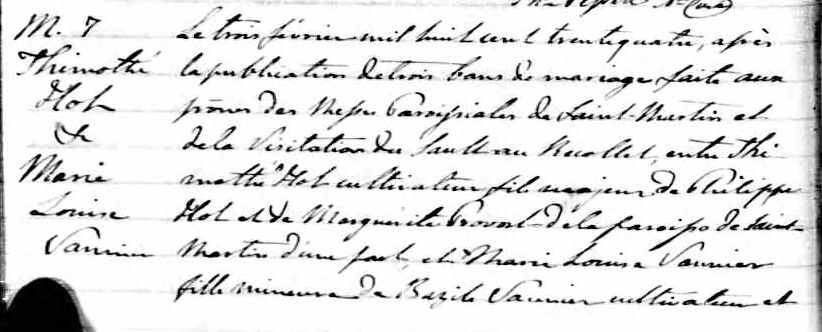 M. 7
Thimothé
Hot
&
Marie
Louise
Vannier
Le trois février mil huit cent trentequatre, après
la publication de trois bans de mariage faite aux
prônes des Messes Paroissiales de Saint-Martin et
de la Visitation du Sault au Recollet, entre Thi
mothé Hot cultivateur fils majeur de Philippe
Hot et de Marguerite Provost de la paroisse de Saint-
Martin d'une part, et Marie Louise Vannier
fille mineure de Bazile Vannier cultivateur et